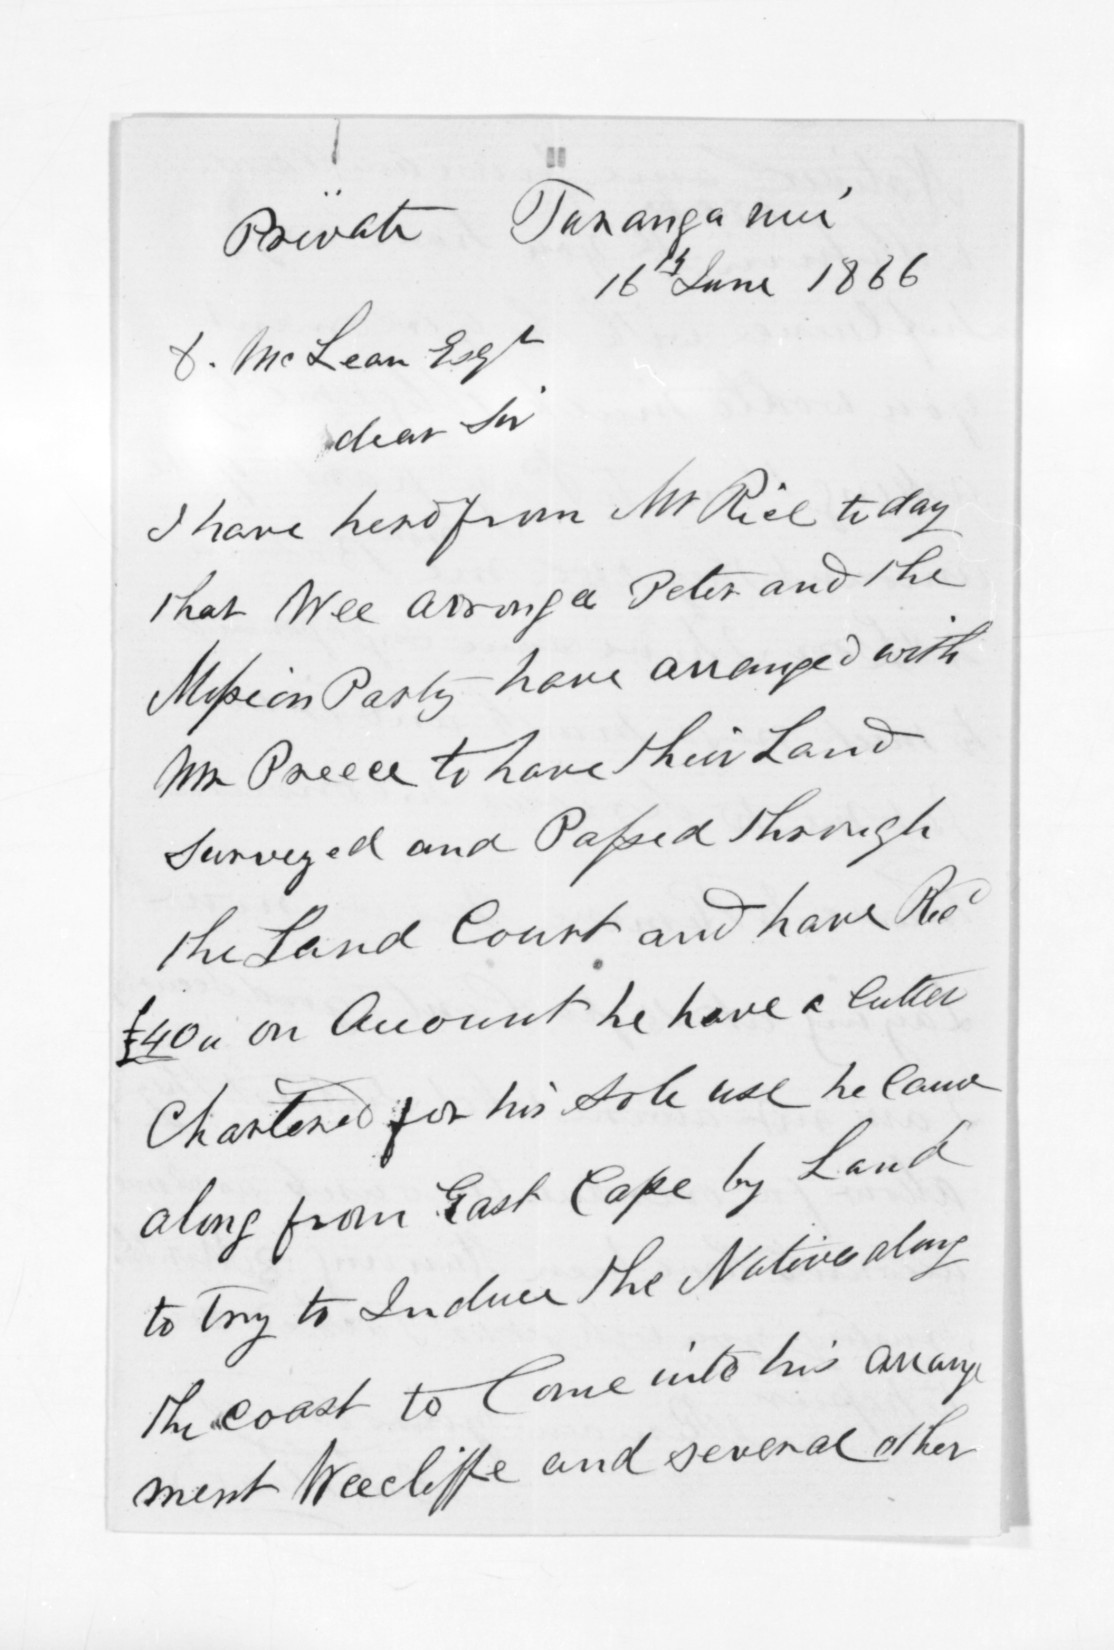 Private Turanganui
16th June 1866
D. McLean Esqr
dear Sir
I have herd from Mr Riel to day
that Wee Arronga Peter and the
Mission Party have arranged with
Mr Preece to have their Land
surveyed and Passed through
the Land Court and have Recd
£40 " on Account he have a Cutter
Chartered for his sole use he Came
along from East Cape by Land
to Try to Induce the Natives along
the coast to Come into his arrange
ment Weecliffe and several other